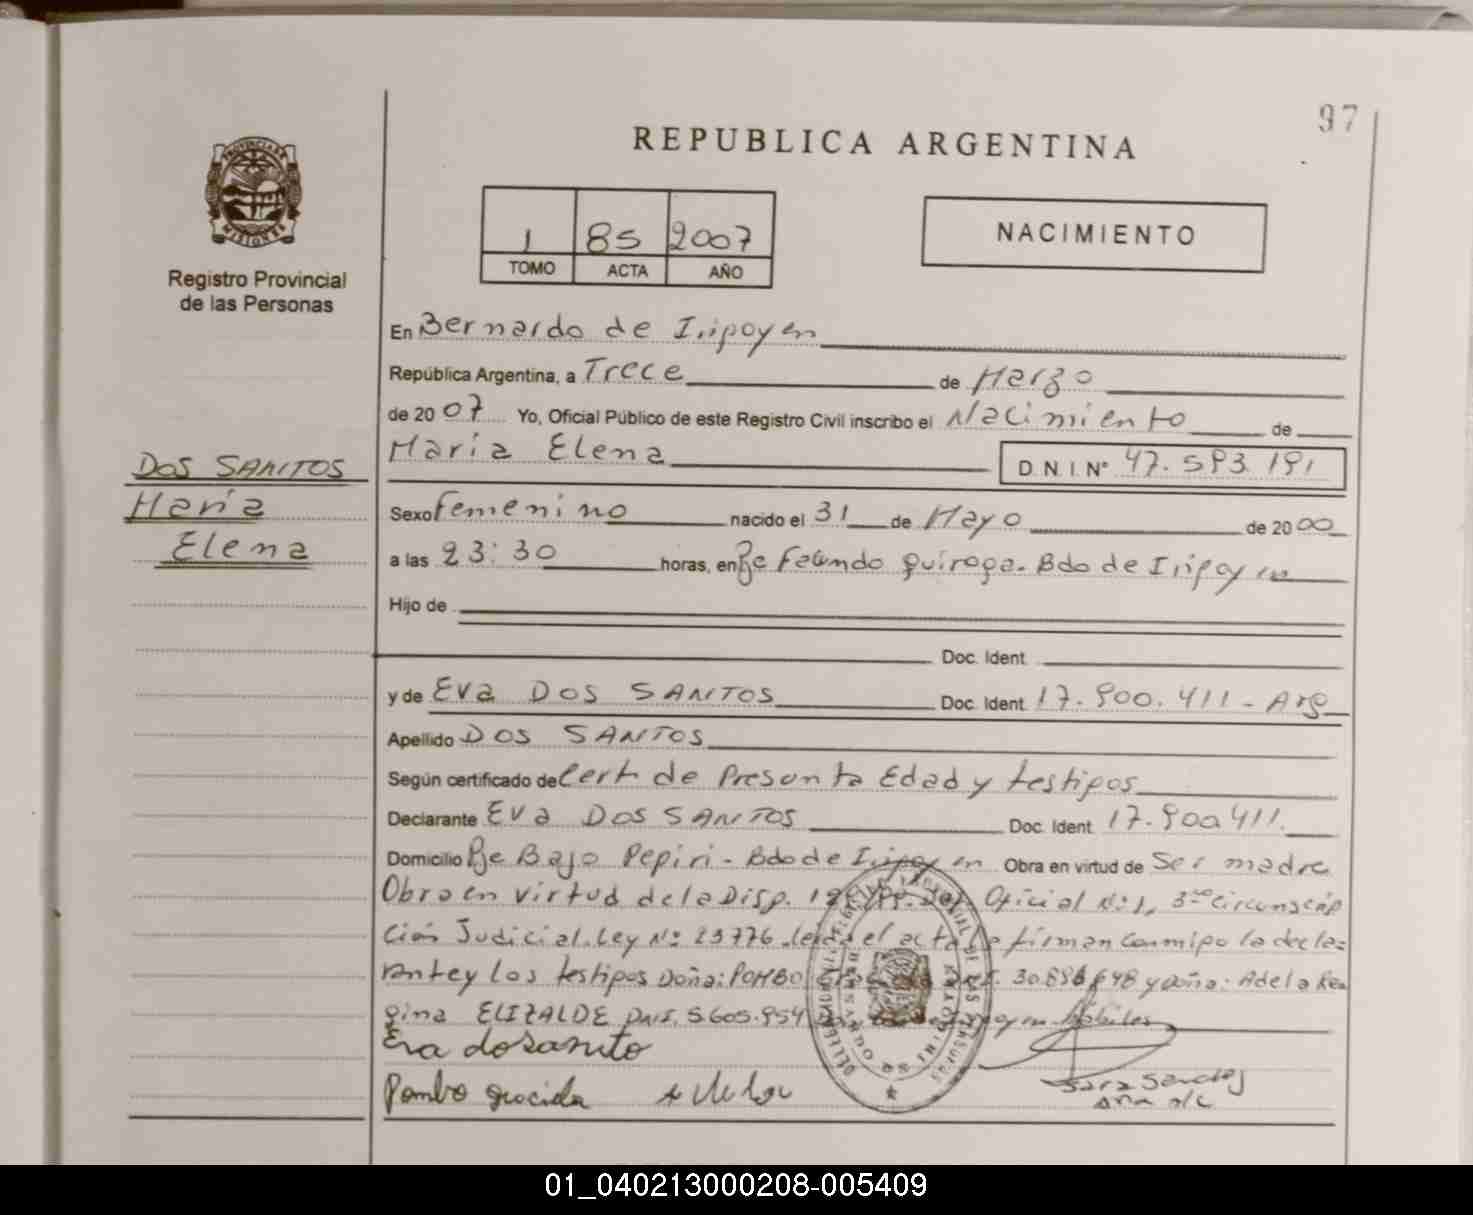 97
REPUBLICA ARGENTINA
PROVINCIA DE MISIONES
Registro Provincial
de las Personas
1 85 2007
TOMO ACTA AÑO
NACIMIENTO
En Bernardo de Irigoyen
República Argentina, a Trece de Marzo
de 2007 Yo, Oficial Público de este Registro Civil inscribo el Nacimiento de
María Elena D.N.I. N° 47.593.191
DOS SANTOS
María
Elena
Sexo Femenino nacido el 31 de Mayo de 2000
a las 23:30 horas, en Pje Facundo Quiroga. Bdo de Irigoyen
Hijo de
Doc. Ident.
y de Eva DOS SANTOS Doc. Ident. 17.900.411 - Arg
Apellido DOS SANTOS
Según certificado de Cert de Presunta Edad y testigos
Declarante Eva DOS SANTOS Doc. Ident. 17.900411.
Domicilio Pje Bajo Pepiri - Bdo de Irigoyen Obra en virtud de Ser madre
Obra en virtud de la Disp. Oficial N°1, 3ra Circunscrip
ción Judicial. Ley N° 23776. leida el acta la firman conmigo la decla=
rante y los testigos Doña: POMBO 30.896.648 y doña: Adela Re
gina ELIZALDE DNI. 5.605.954 hábiles
Eva dosanito
Pombo graciela
Sara Sanchez
01_040213000208-005409